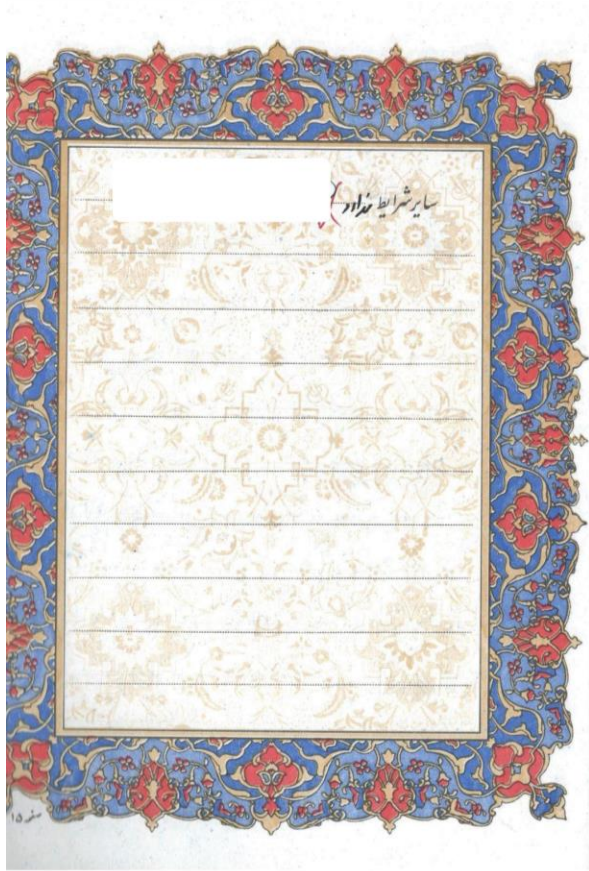 سایر شرایط ندارد
صفحه ۱۵